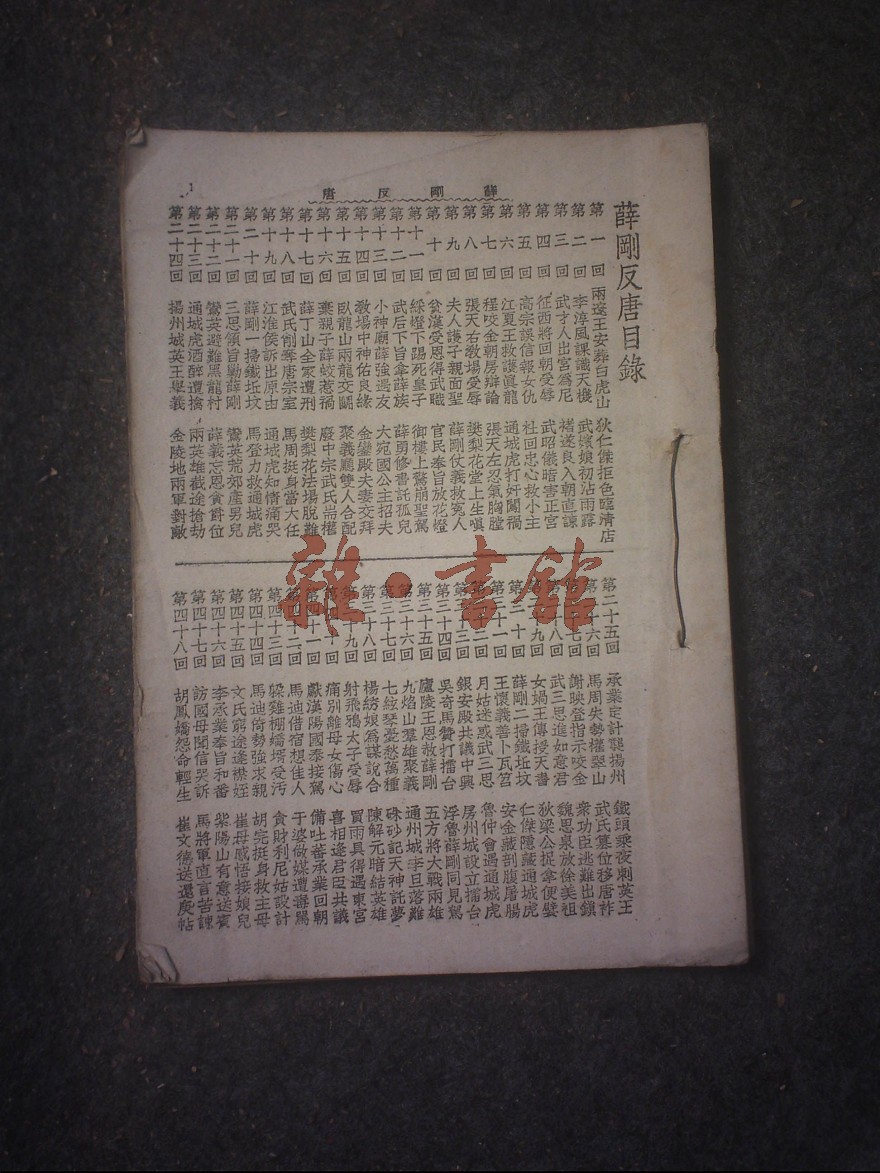 薛剛反唐
1
薛剛反唐目錄
第一回 兩遼王安葬白虎山 狄仁傑拒色臨清店
第二回 李淳風課識天機 武媚娘初沾雨露
第三回 武才人出宮為尼 褚遂良入朝直諫
第四回 征西將回朝受辱 武昭儀暗害正宮
第五回 高宗誤信報女仇 杜回忠心救小主
第六回 江夏王救護眞龍 通城虎打奸闖禍
第七回 程咬金朝房辯論 張天左忍氣胸膛
第八回 張天右敎場受辱 樊梨花堂上生嗔
第九回 夫人護子親面聖 薛剛仗義救冤人
第十回 貧漢受恩得武職 官民奉旨放花燈
第十一回 綵燈下踢死皇子 御樓上驚崩聖駕
第十二回 武后下旨拿薛族 薛勇修書託孤兒
第十三回 小神廟薛強遇友 大宛國公主招夫
第十四回 敎場中神佑良緣 金鑾殿夫妻交拜
第十五回 臥龍山兩龍交鬬 聚義廳雙人合配
第十六回 棄親子薛蛟惹禍 廢中宗武氏耑權
第十七回 薛丁山全家遭刑 樊梨花法場脫難
第十八回 武氏削奪唐宗室 馬周挺身當大任
第十九回 江淮侯訴出原由 通城虎知情痛哭
第二十回 薛剛一掃鐵坵坟 馬登力救通城虎
第二十一回 三思領旨勦薛剛 鸞英荒郊產男兒
第二十二回 鸞英避難黑龍村 薛義忘恩貪爵位
第二十三回 通城虎酒醉遭擒 兩英雄截途搶劫
第二十四回 揚州城英王舉義 金陵地兩軍對敵
第二十五回 承業定計襲揚州 鐵頭乘夜刺英王
十六回 馬周失勢權翠山 武氏篡位移唐祚
十七回 謝映登指示咬金 衆功臣逃難出鎭
武三思進如意君 魏思泉放徐美祖
九回 女媧王傳授天書 狄梁公捉拿便嬖
十回 薛剛二掃鐵坵坟 仁傑隱藏通城虎
十一回 王懷義善卜瓦笤 安金藏剖腹屠腸
二回 月姑迷惑武三思 魯仲會遇通城虎
三回 銀安殿共議中興 房州城設立擂台
吳奇馬贊打擂台 浮魯薛剛同見駕
第三十五回 廬陵王恩赦薛剛 五方將大戰兩雄
第三十六回 九焰山羣雄聚義 通州城李旦落難
第三十七回 七絃琴憂愁萬種 硃砂記天神託夢
第三十八回 楊紡娘為謀說合 陳解元暗結英雄
十九回 射飛鴉太子受辱 買雨具得遇東宮
十回 痛別離母女傷心 喜相逢君臣共議
第四十一回 獻漢陽國泰接駕 備吐蕃承業回朝
第四十二回 馬迪借宿想佳人 于婆做媒遭辱罵
第四十三回 躱難棚嬌壻受汚 貪財利尼姑設計
第四十四回 馬迪倚勢強求親 胡完挺身救主母
第四十五回 文氏窮途逢襟姪 崔母感悟接娘兒
第四十六回 李承業奉旨和番 紫陽山有意送賓
第四十七回 訪國母聞信哭訴 馬將軍直言苦諫
第四十八回 胡鳳嬌怨命輕生 崔文德送還庚帖
雜·書館